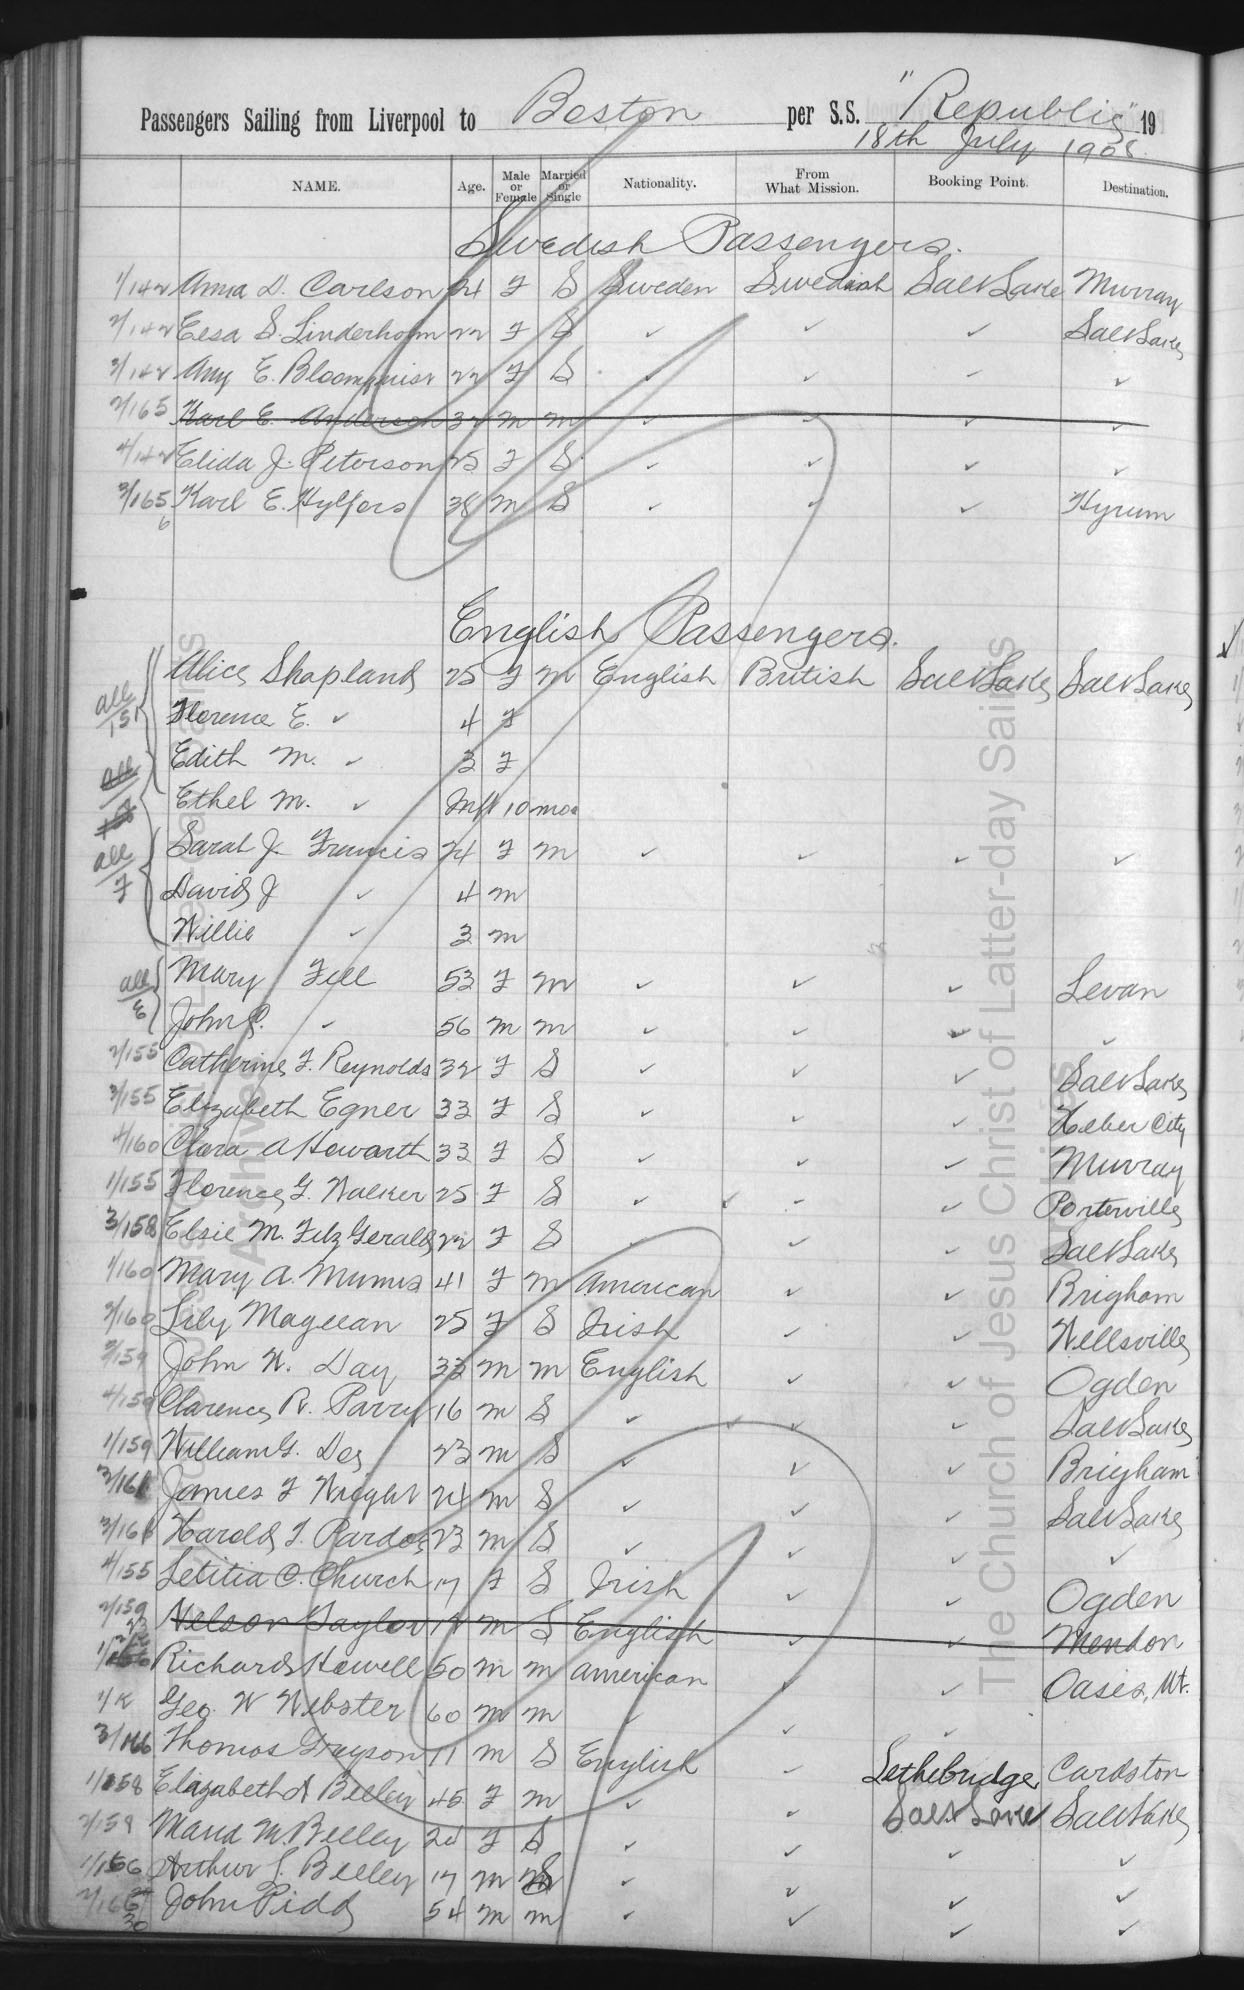 Passengers Sailing from Liverpool to Boston per S.S. "Republic" 19
18th July 1908.
NAME. Age. Male or Female Married or Single Nationality. From What Mission. Booking Point. Destination.
Swedish Passengers.
1/142 Anna D. Carlson 24 F S Sweden Swedish Salt Lake Murray
2/142 Elsa S. Linderholm 22 F S ✓ ✓ ✓ Salt Lake
3/142 Amy E. Bloomquist 22 F S ✓ ✓ ✓ ✓
2/165 Karl E. Anderson 32 m m ✓ ✓ ✓ ✓
4/142 Elida J. Peterson 25 F S ✓ ✓ ✓ ✓
3/165 Karl E. Hylfors 38 m S ✓ ✓ ✓ Hyrum
6
English Passengers.
Alice Shapland 25 F m English British Salt Lake Salt Lake
all 151 Florence E. ✓ 4 F
Edith M. ✓ 3 F
all Ethel M. ✓ Inft 10 mos
Sarah J. Francis 24 F m ✓ ✓ ✓ ✓
all F David J ✓ 4 m
Willie ✓ 3 m
all E Mary Fell 53 F m ✓ ✓ ✓ Levan
John P. ✓ 56 m m ✓ ✓ ✓ ✓
2/155 Catherine F. Reynolds 32 F S ✓ ✓ ✓ Salt Lake
3/155 Elizabeth Egner 33 F S ✓ ✓ ✓ Heber City
4/160 Clara A Howarth 33 F S ✓ ✓ ✓ Murray
1/155 Florence G. Walker 25 F S ✓ ✓ - ✓ Porterville
3/158 Elsie M. FitzGerald 22 F S ✓ ✓ ✓ Salt Lake
1/160 Mary A. Mumis 41 F m American ✓ ✓ Brigham
2/160 Lily Mageean 25 F S Irish ✓ ✓ Wellsville
2/159 John W. Day 33 m m English ✓ ✓ Ogden
4/159 Clarence R. Parry 16 m S ✓ ✓ ✓ Salt Lake
1/159 William G. Dee 23 m S ✓ ✓ ✓ Brigham
2/161 James F Wright 24 m S ✓ ✓ ✓ Salt Lake
3/161 Harold T. Pardoe 23 m S ✓ ✓ ✓ ✓
4/155 Letitia C. Church 17 F S Irish ✓ ✓ Ogden
2/159 Nelson Taylor 18 m S English ✓ ✓ Mendon
Richard Howell 50 m m American ✓ ✓ Oasis, Ut.
Geo. W Webster 60 m m ✓ ✓ ✓
3/166 Thomas Grayson 11 m S English ✓ Lethebridge Cardston
1/158 Elizabeth A Beeley 45 F m ✓ ✓ Salt Lake Salt Lake
2/158 Maud M. Beeley 20 F S ✓ ✓ ✓ ✓
1/166 Arthur S. Beeley 17 m S ✓ ✓ ✓ ✓
John Pidd 54 m m ✓ ✓ ✓ ✓
30
The Church of Jesus Christ of Latter-day Saints
Archives